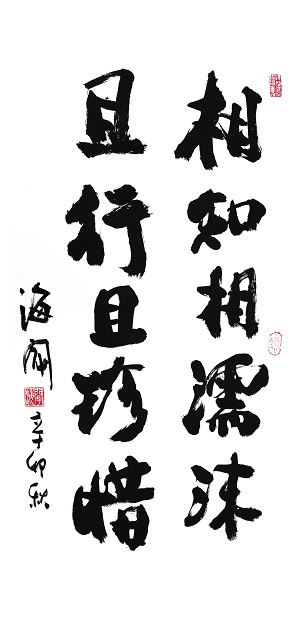 相知相濡沫
且行且珍惜
海阔
辛卯秋